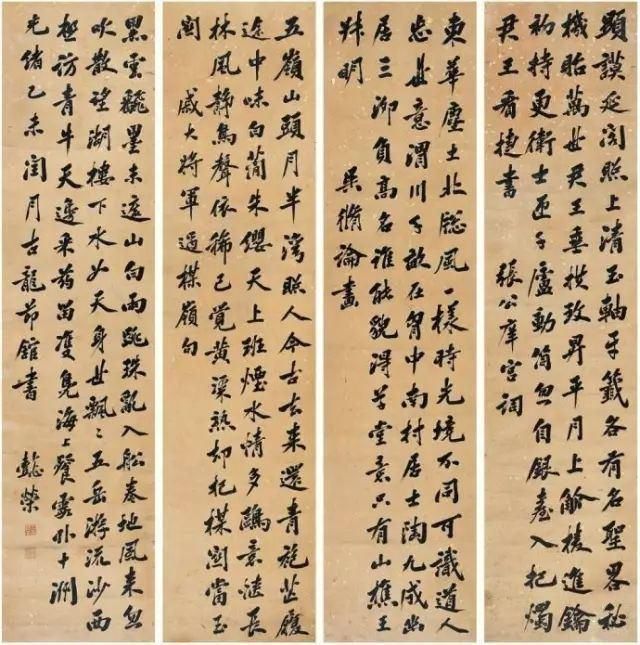 顯謨延閣照上清玉軸牙籤各有名聖畧秘
機貽萬世君王垂拱致昇平月上觚棱進鑰
初持更衛士匝千廬動簡忽自銀臺入把燭
君王看捷書 張公庠宮詞
東華塵土北牕風一樣時光境不同可識道人
忘世意渭川千畝在胷中南村居士陶九成幽
居三泖負高名誰能貌得草堂意只有山樵王
叔明 吳脩論畫
五嶺山頭月半灣照人今古去來還青旌芒履
途中味白簡朱纓天上班煙水情多鷗意愜長
林風靜鳥聲依稀已覺黃粱熟却把楳關當玉
關 戚大將軍過楳嶺句
黑雲翻墨未遮山白雨跳珠亂入船卷地風來忽
吹散望湖樓下水如天身世飄〻五岳游流沙西
極訪青牛天邊采葯留雙鳧海上餐霞外十洲
光緒乙未閏月古龍節館書 懿榮